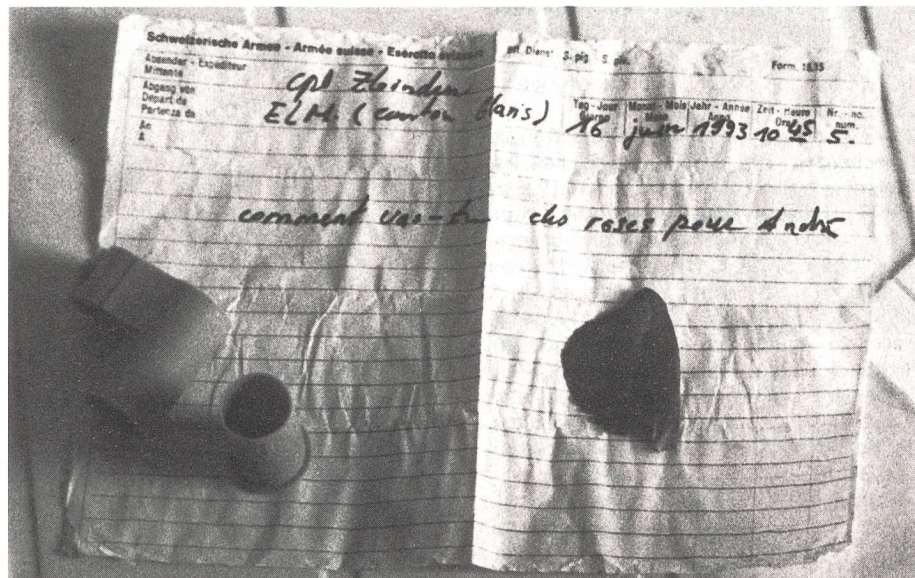 Schweizerische Armee - Armée suisse - Esercito svizzero
pst. Dienst S. plg. S. pik.
Form. 18.15
Absender - Expéditeur
Mittente
cpl
Abgang von
Départ de
Partenza da
ELM. (canton Glaris)
Tag - Jour
Giorno
Monat - Mois
Mese
Jahr - Année
Anno
Zeit - Heure
Ora
Nr. - no.
num.
16 juin 1993 10 45 5.
An
A
comment vas-tu des roses pour André